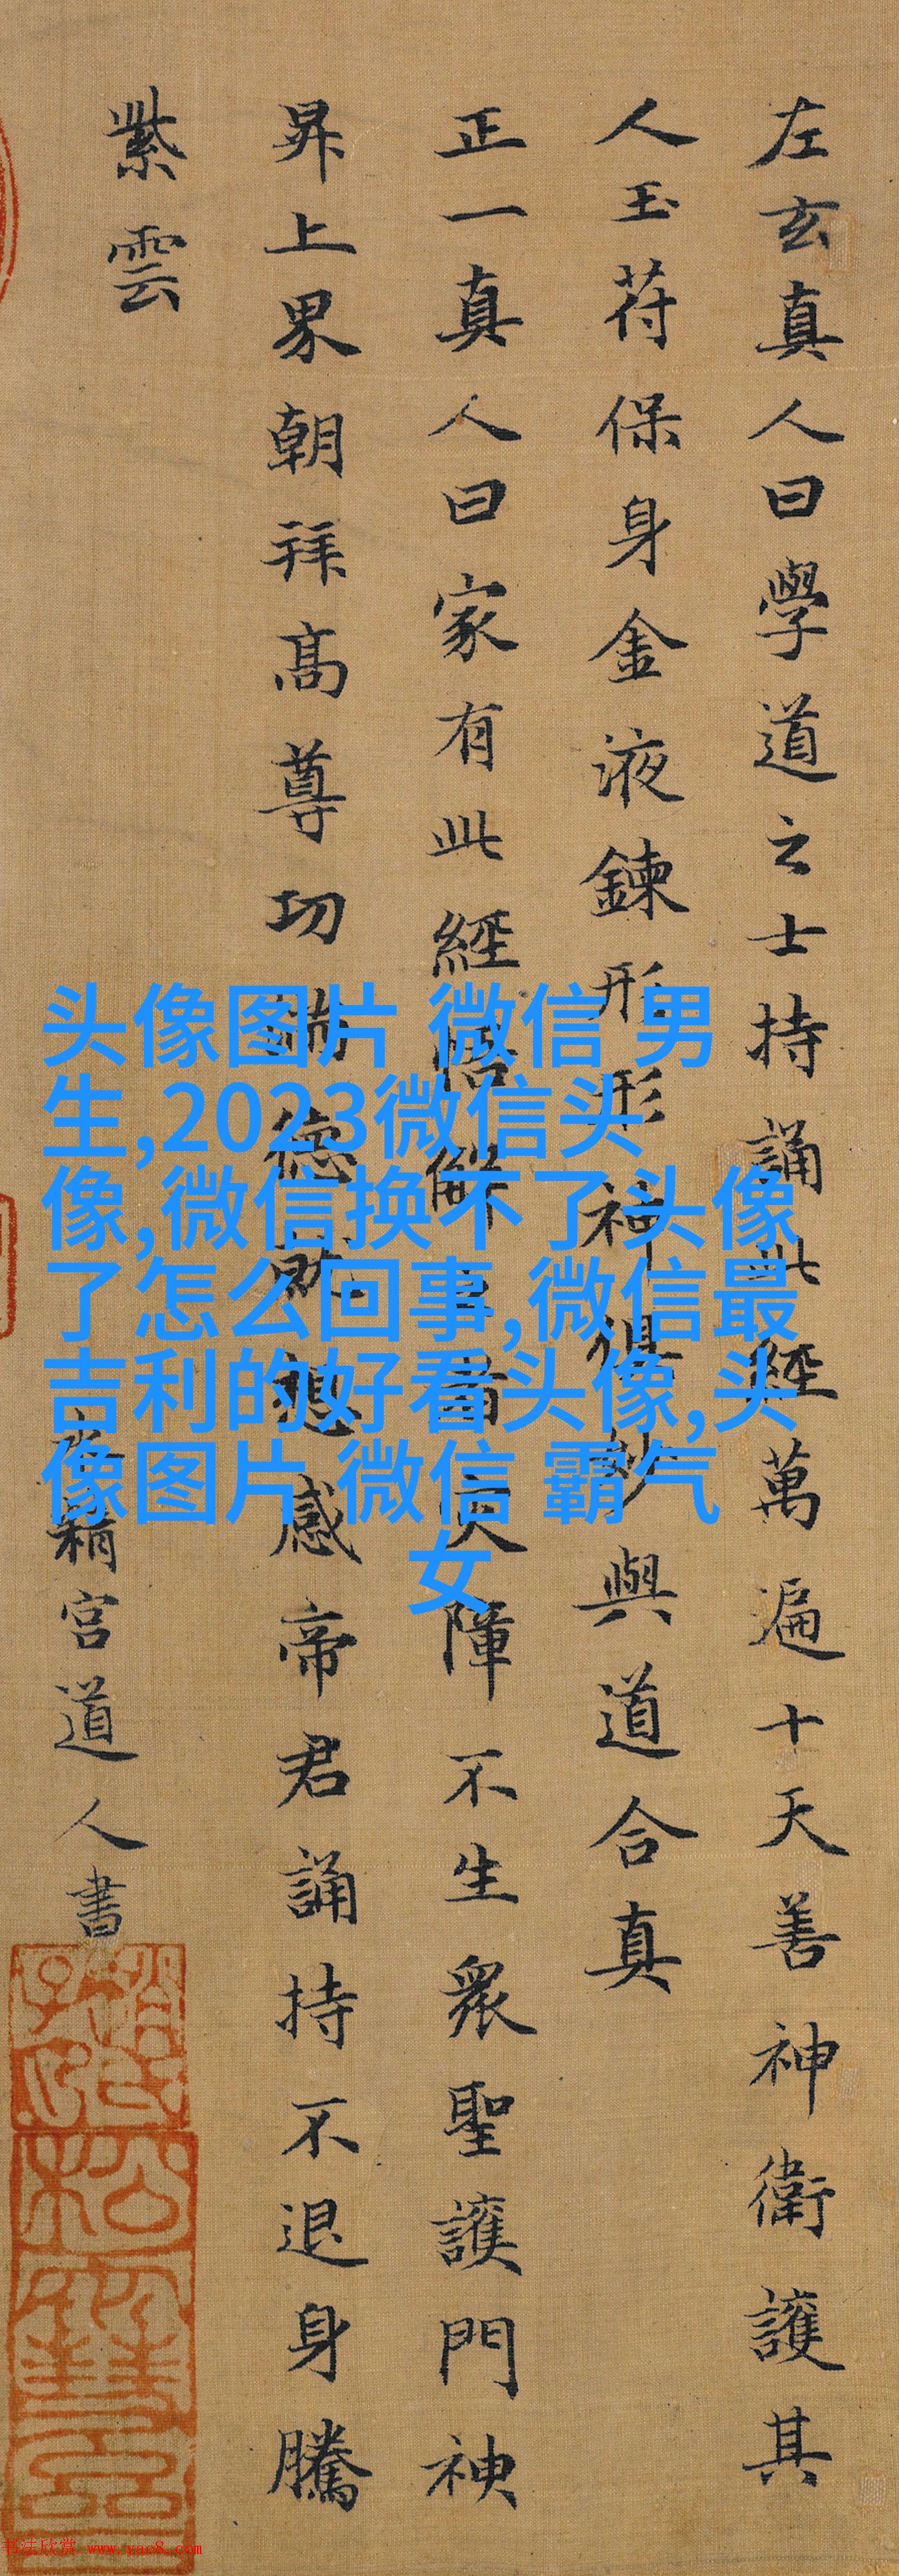 左玄真人曰學道之士持誦此經萬遍十天善神衛護其
人玉苻保身金液鍊形形神俱妙與道合真
正一真人曰家有此經悟解之者灾障不生衆聖護門神
昇上界朝拜高尊功滿德就想感帝君誦持不退身騰
紫雲
水精宮道人書
头像图片 微信 男
生,2023微信头
像,微信换不了头像
了怎么回事,微信最
吉利的好看头像,头
像图片 微信 霸气
女
书法欣赏 www.yac8.com